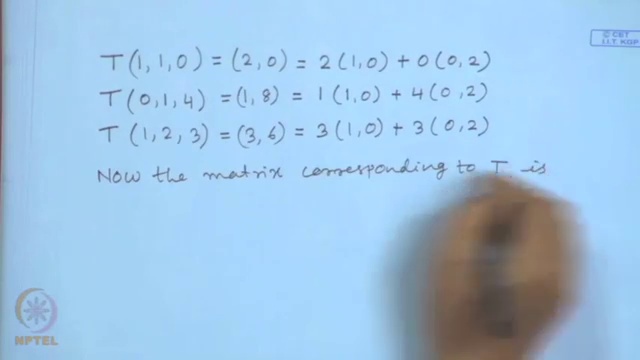 © CET
I.I.T. KGP
T(1,1,0) = (2,0) = 2(1,0) + 0(0,2)
T(0,1,4) = (1,8) = 1(1,0) + 4(0,2)
T(1,2,3) = (3,6) = 3(1,0) + 3(0,2)
Now the matrix corresponding to T is
NPTEL